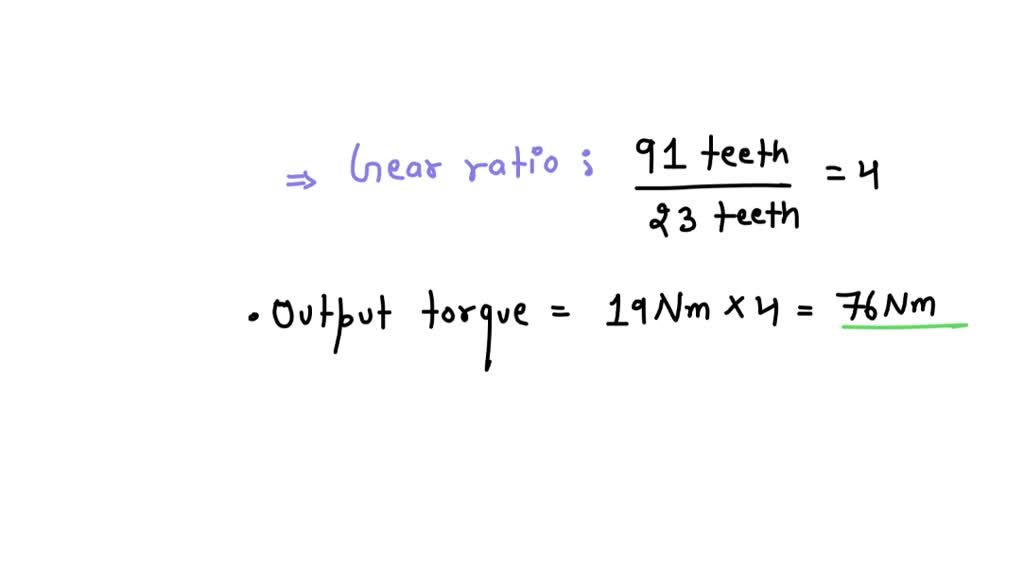 ⇒ Gear ratio ; 91 teeth / 23 teeth = 4
• Output torque = 19 Nm × 4 = 76 Nm